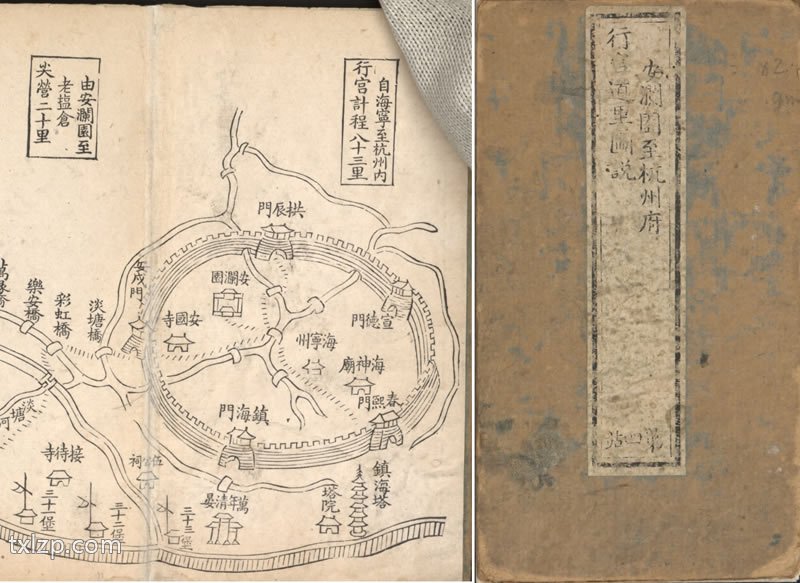 自海寧至杭州內
行宮計程八十三里
由安瀾園至
老塩倉
尖營二十里
拱辰門
宣德門
安瀾園
安國寺
海寧州
海神廟
春熙門
鎮海門
安戍門
淡塘橋
彩虹橋
樂安橋
淡塘河
接待寺
伍公祠
三十一堡
三十二堡
三十三堡
萬年清晏
塔院
鎮海塔
安瀾園至杭州府
行宮道里圖說
第四站
txlzp.com